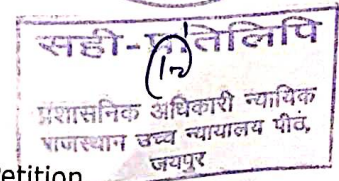 सही-प्रतिलिपि
प्रशासनिक अधिकारी न्यायिक
राजस्थान उच्च न्यायालय पीठ,
जयपुर
Petition